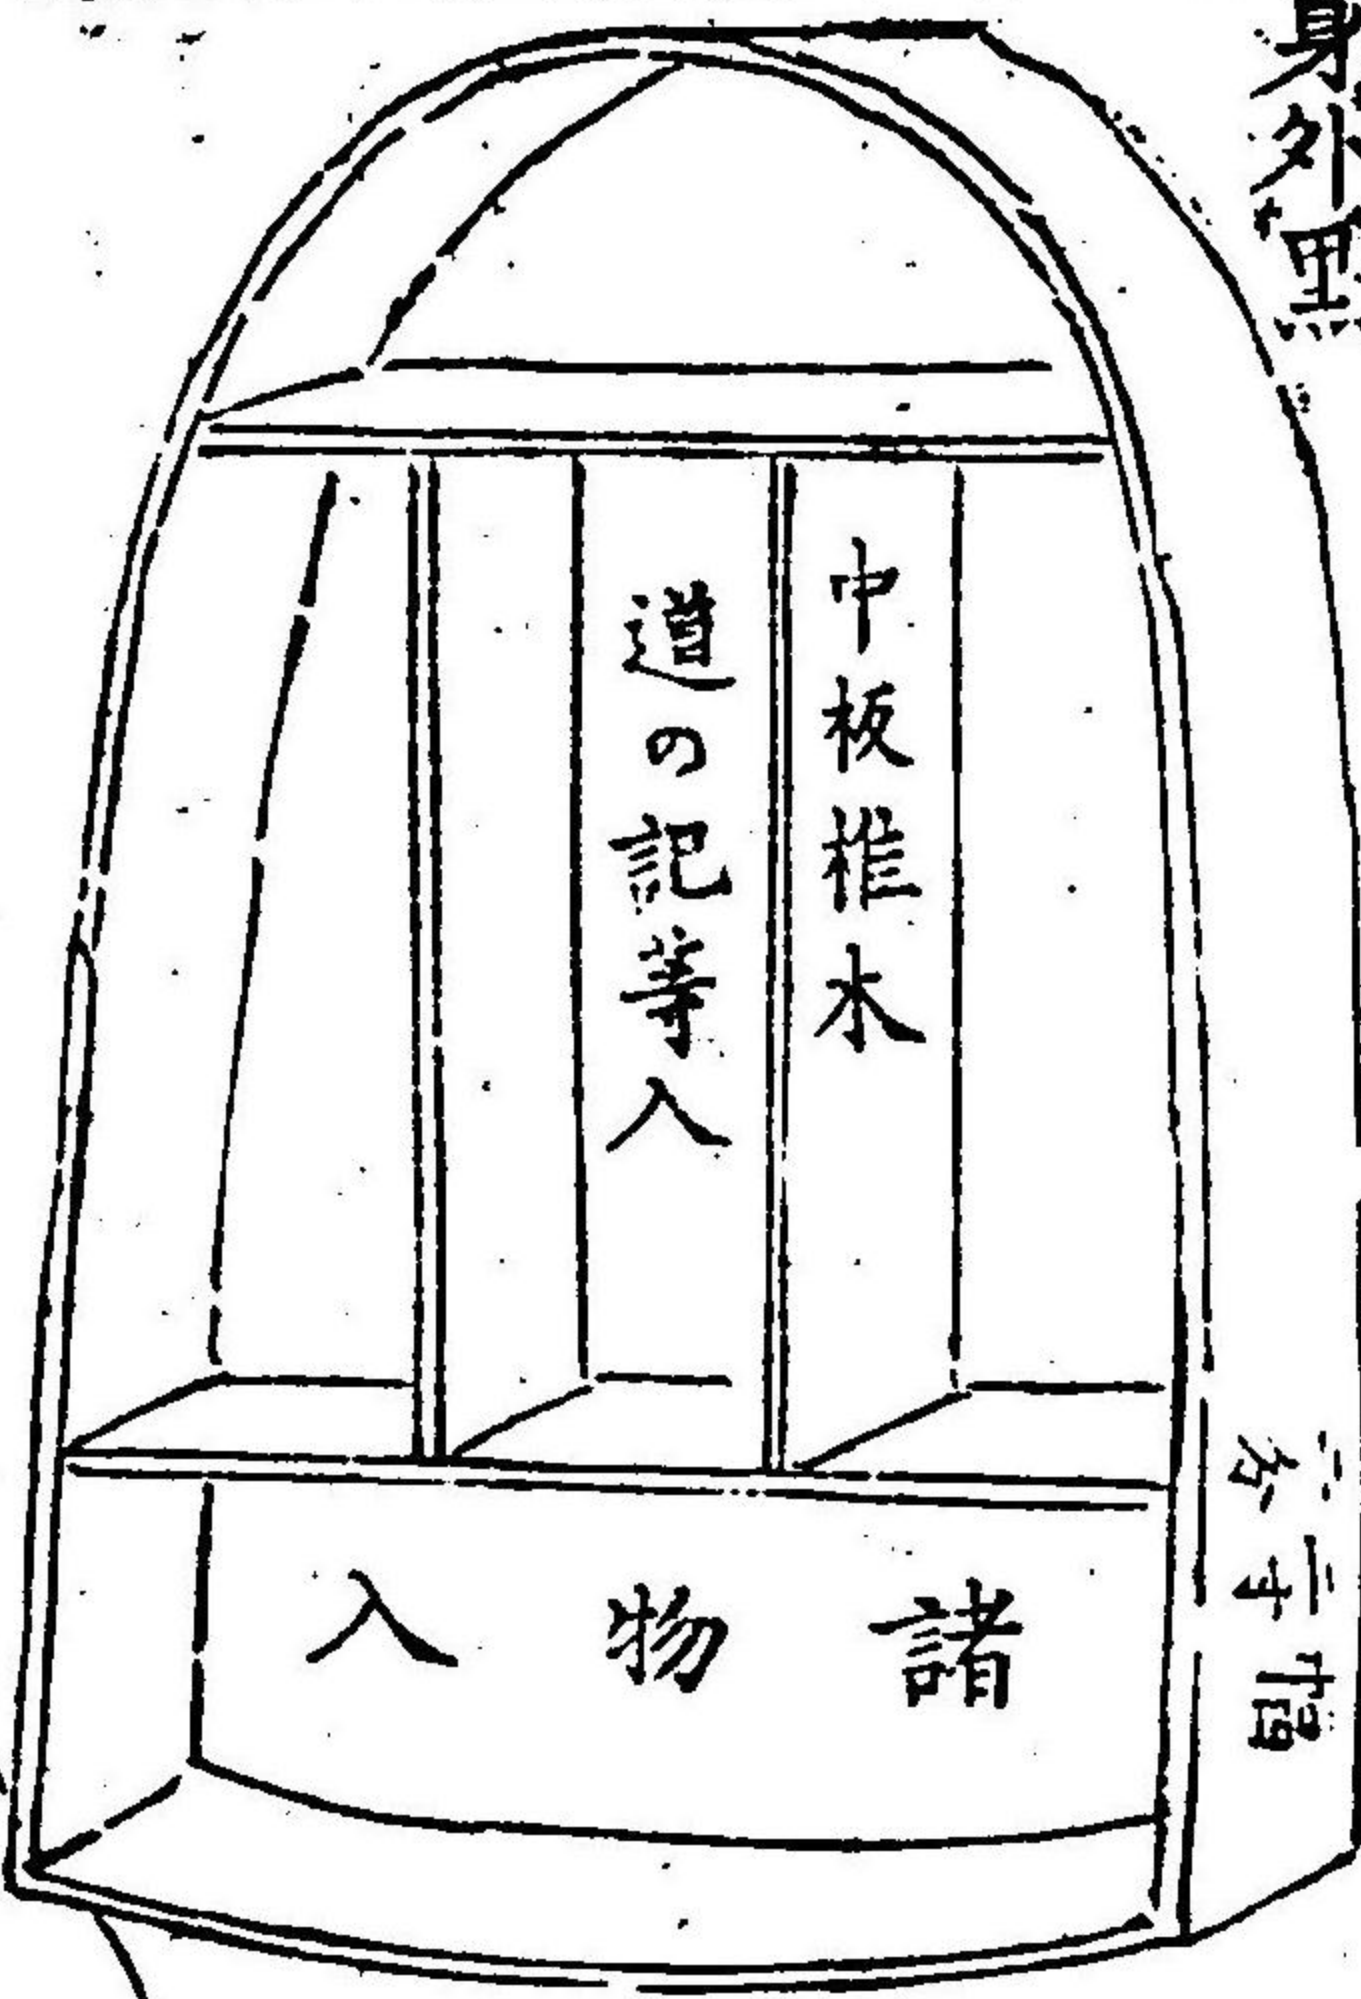 身外黒
中板椎木
道の記等入
諸物入
二寸